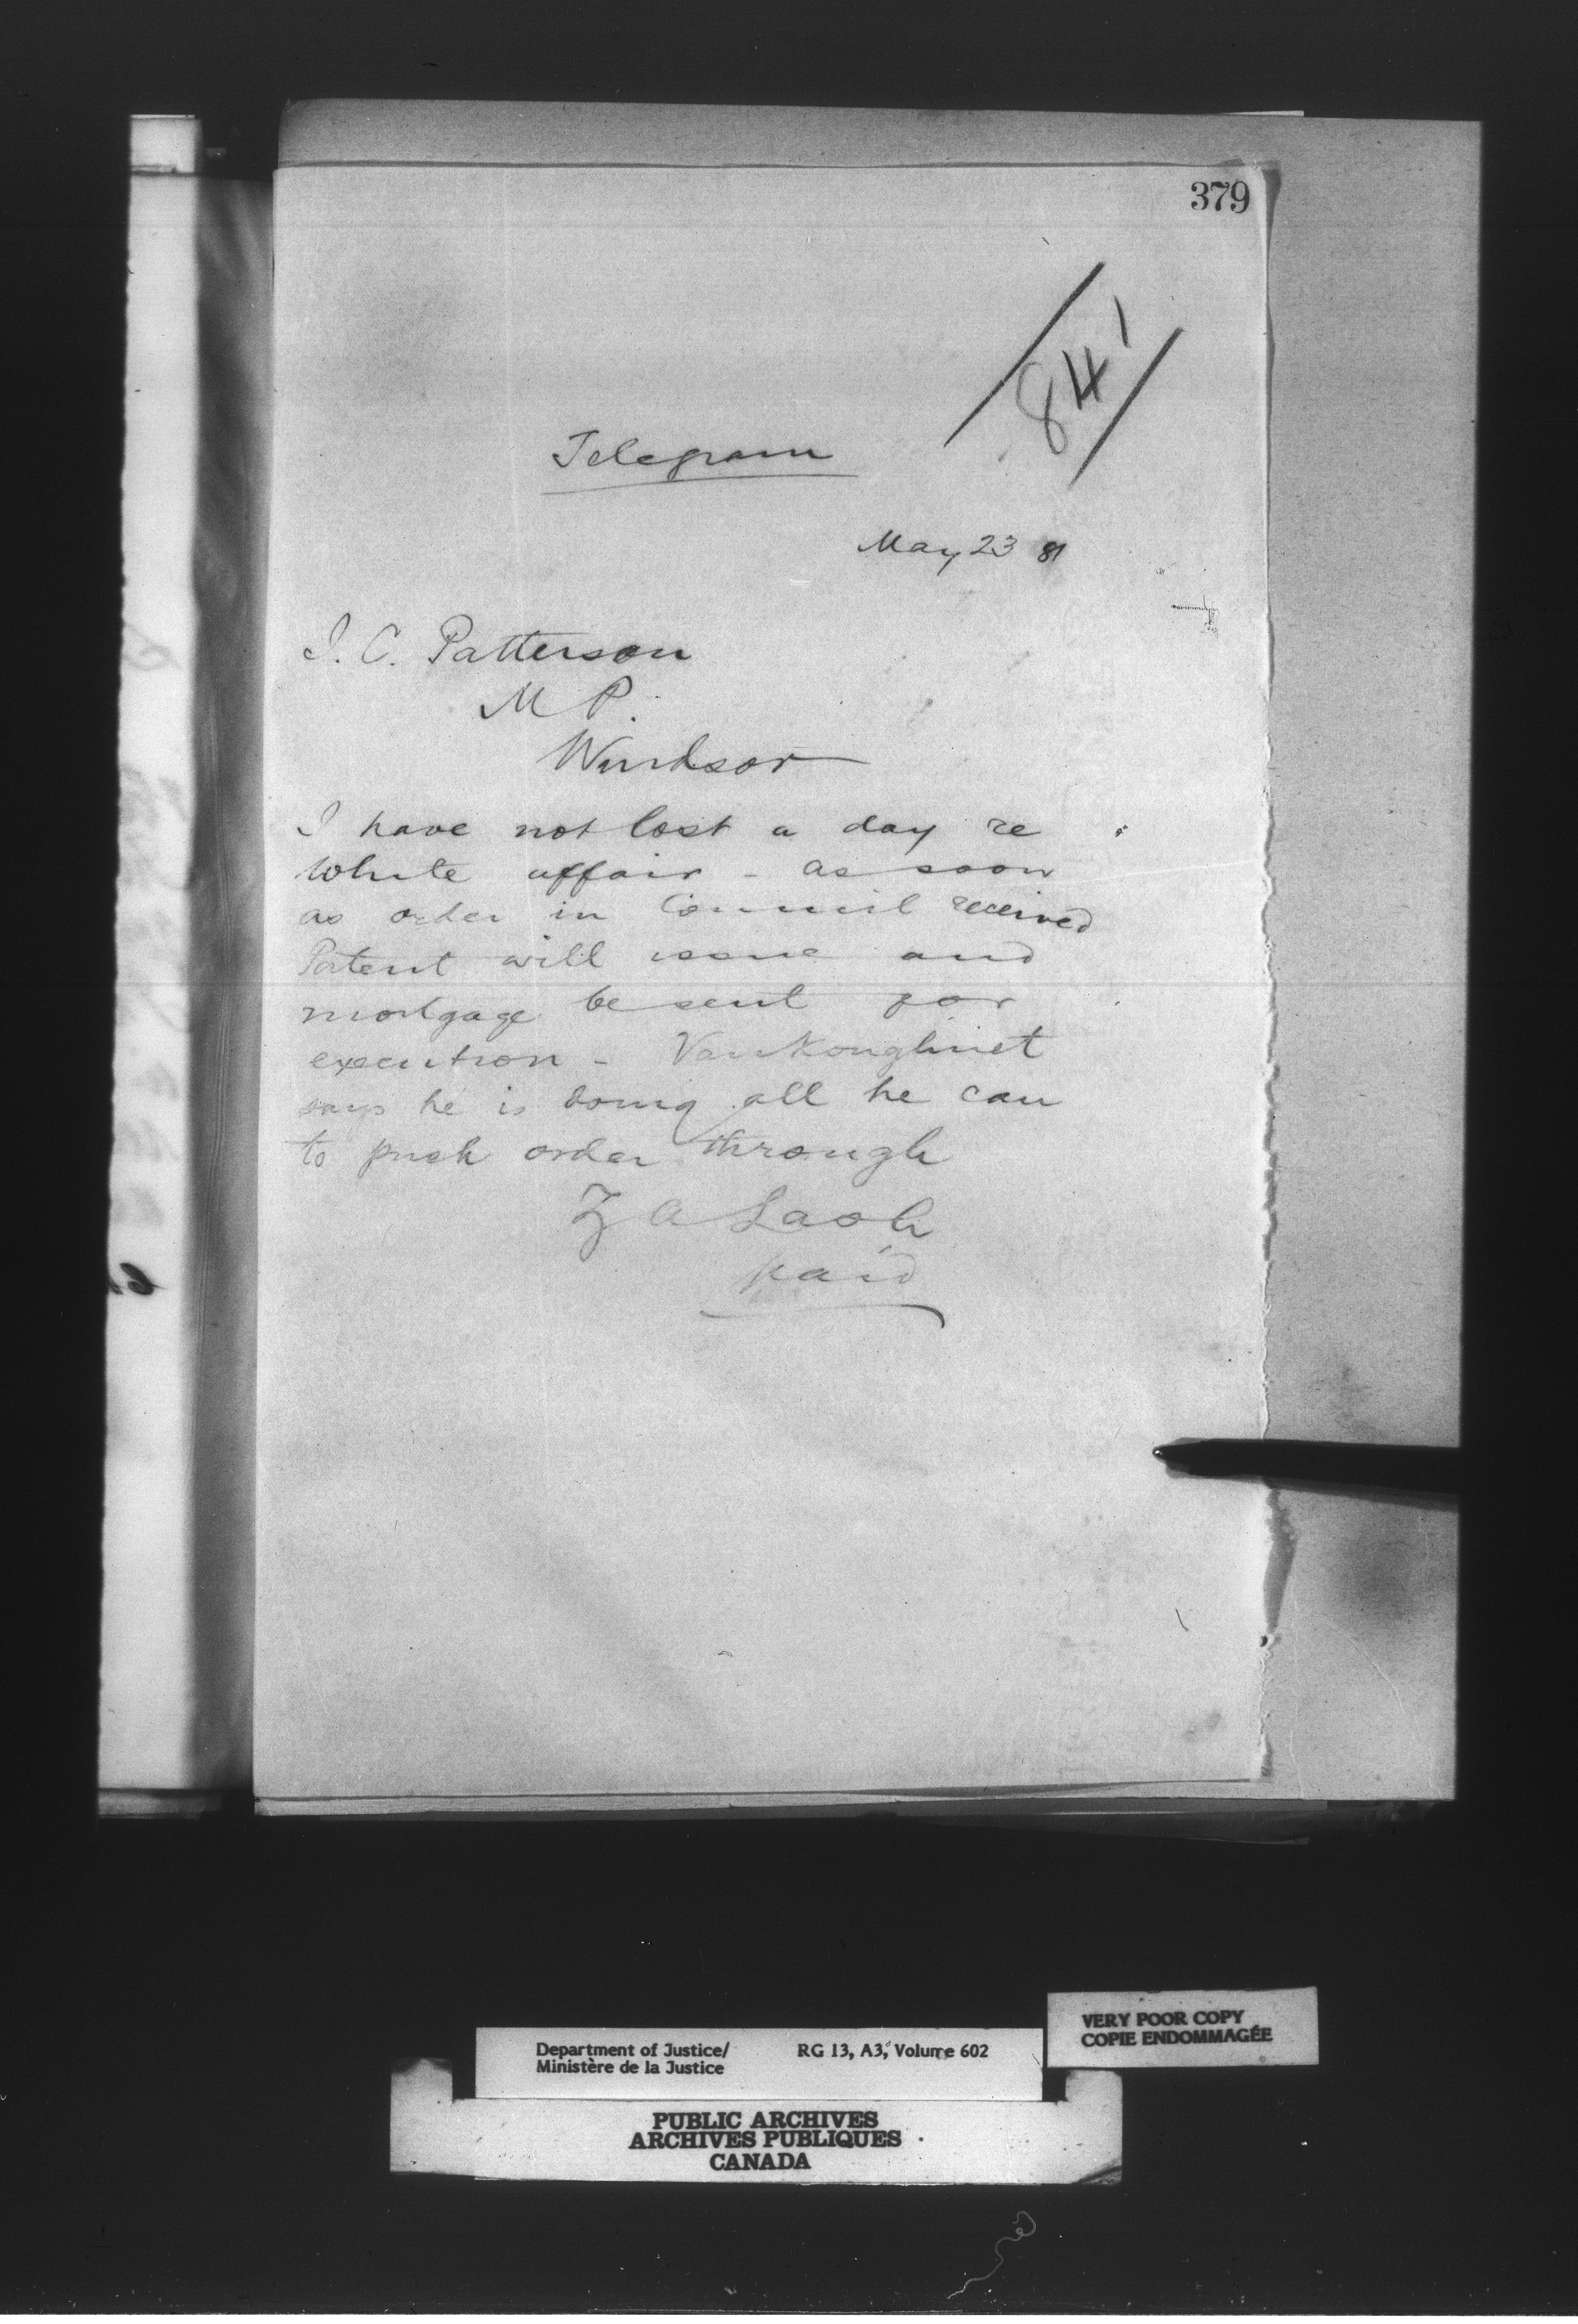 379
841
Telegram
May 23 81
J. C. Patterson
M P.
Windsor
I have not lost a day re
White affair - as soon
as order in Council received
Patent will issue and
mortgage be sent for
execution - VanKoughnet
says he is doing all he can
to push order through
Z A Lash
paid
Department of Justice/ RG 13, A3, Volume 602
Ministère de la Justice
VERY POOR COPY
COPIE ENDOMMAGÉE
PUBLIC ARCHIVES
ARCHIVES PUBLIQUES
CANADA